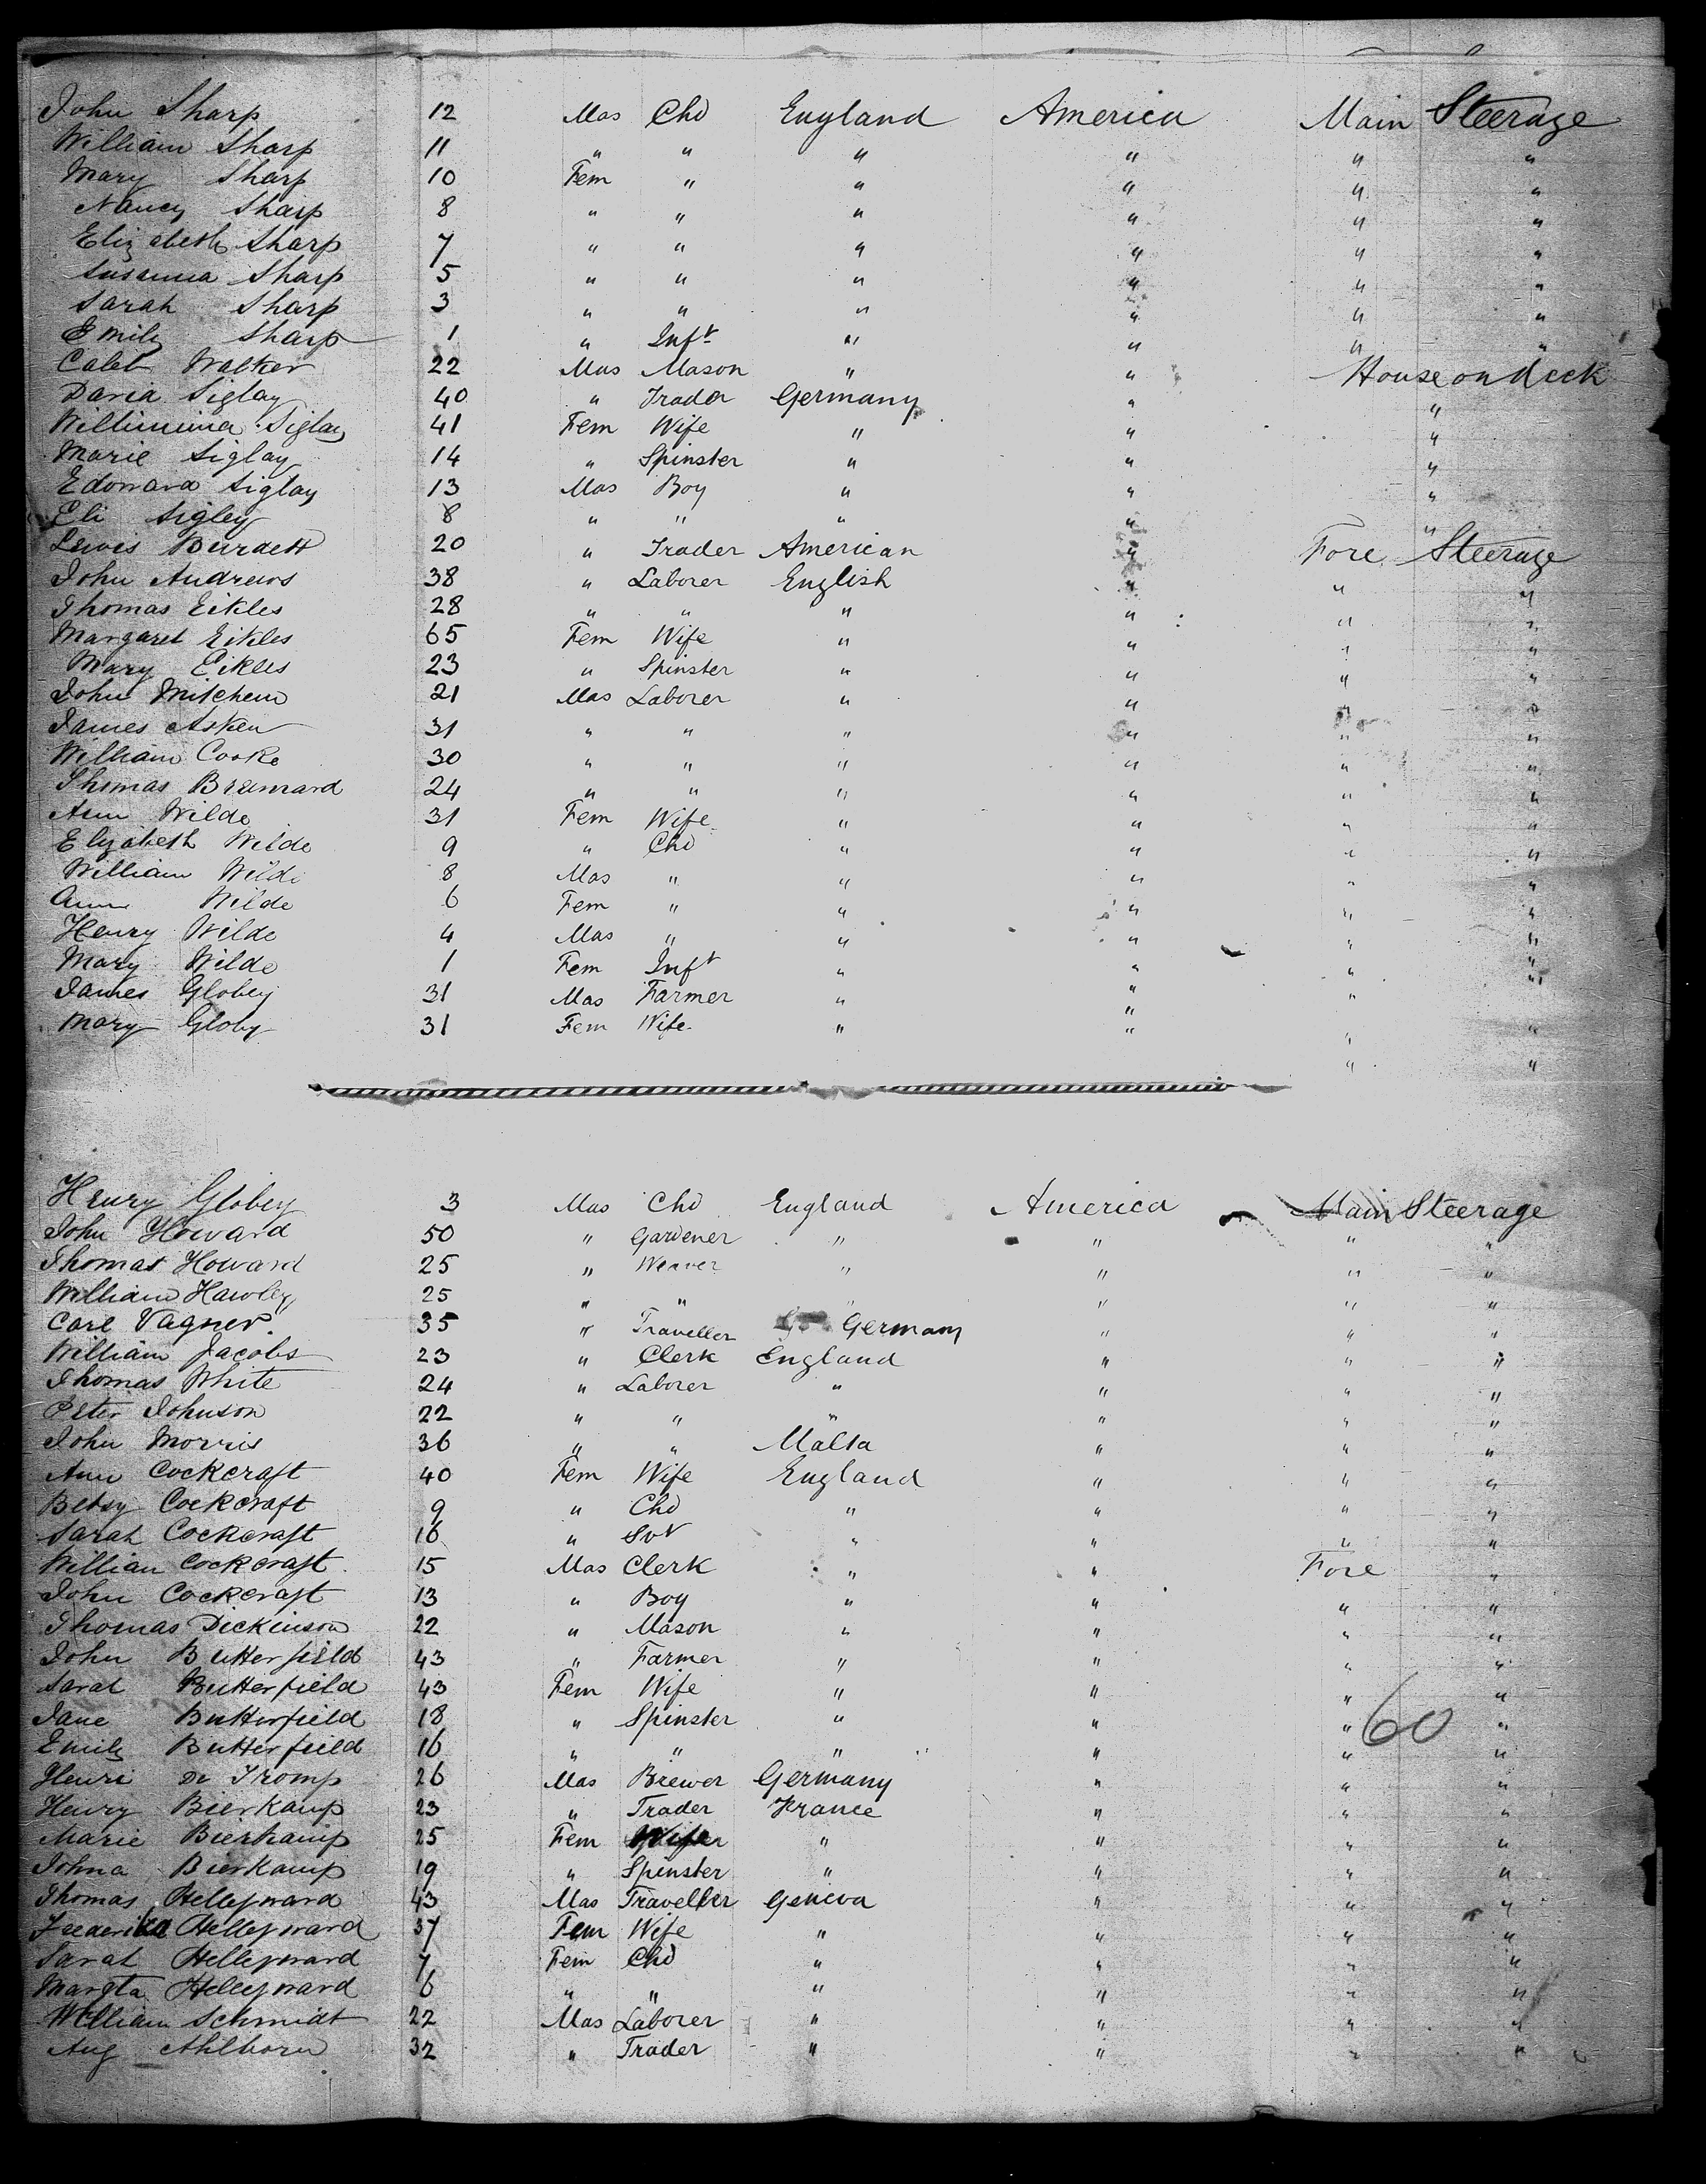 John Sharp 12 Mas Chd England America Main Steerage
William Sharp 11 " " " " " "
Mary Sharp 10 Fem " " " " "
Nancy Sharp 8 " " " " " "
Elizabeth Sharp 7 " " " " " "
Susanna Sharp 5 " " " " " "
Sarah Sharp 3 " " " " " "
Emily Sharp 1 " Inft " " " "
Caleb Walker 22 Mas Mason " " House on deck
David Siglay 40 " Trader Germany " "
Willimina Siglay 41 Fem Wife " " "
Marie Siglay 14 " Spinster " " "
Edorward Siglay 13 Mas Boy " " "
Eli Sigley 8 " " " " "
Lewis Burdett 20 " Trader American " Fore Steerage
John Andrews 38 " Laborer English " " "
Thomas Eikles 28 " " " " " "
Margaret Eikles 65 Fem Wife " " " "
Mary Eikles 23 " Spinster " " " "
John Mitchem 21 Mas Laborer " " " "
James Asken 31 " " " " " "
William Cooke 30 " " " " " "
Thomas 24 " " " " " "
Ann Wilde 31 Fem Wife " " " "
Elizabeth Wilde 9 " Chd " " " "
William Wilde 8 Mas " " " " "
Ann Wilde 6 Fem " " " " "
Henry Wilde 4 Mas " " " " "
Mary Wilde 1 Fem Inft " " " "
James Globey 31 Mas Farmer " " " "
Mary Globy 31 Fem Wife " " " "
" "
Henry Globey 3 Mas Chd England America Main Steerage
John Howard 50 " Gardener " " " "
Thomas Howard 25 " Weaver " " " "
William Hawley 25 " " " " " "
Carl Vagner. 35 " Traveller Germany " " "
William Jacobs 23 " Clerk England " " "
Thomas White 24 " Laborer " " " "
Peter Johnson 22 " " " " " "
John Morris 36 " " Malta " " "
Ann Cockcraft 40 Fem Wife England " " "
Betsy Cockcraft 9 " Chd " " " "
Sarah Cockcraft 16 " Svt " " " "
William Cockcraft 15 Mas Clerk " " Fore "
John Cockcraft 13 " Boy " " " "
Thomas Dickinson 22 " Mason " " " "
John Butterfield 43 " Farmer " " " "
Sarah Butterfield 43 Fem Wife " " " "
Jane Butterfield 18 " Spinster " " " 60 "
Emily Butterfield 16 " " " " " "
Henri De Tromp 26 Mas Brewer Germany " " "
Henry Bierkamp 23 " Trader France " " "
Marie Bierkamp 25 Fem Wife " " " "
Johna Bierkamp 19 " Spinster " " " "
Thomas Helleyward 43 Mas Traveller Geneva " " "
Frederika Helleyward 37 Fem Wife " " " "
Sarah Helleyward 7 Fem Chd " " " "
Margta Helleyward 6 " " " " " "
William Schmidt 22 Mas Laborer " " " "
Aug Ahlborn 32 " Trader " " " "